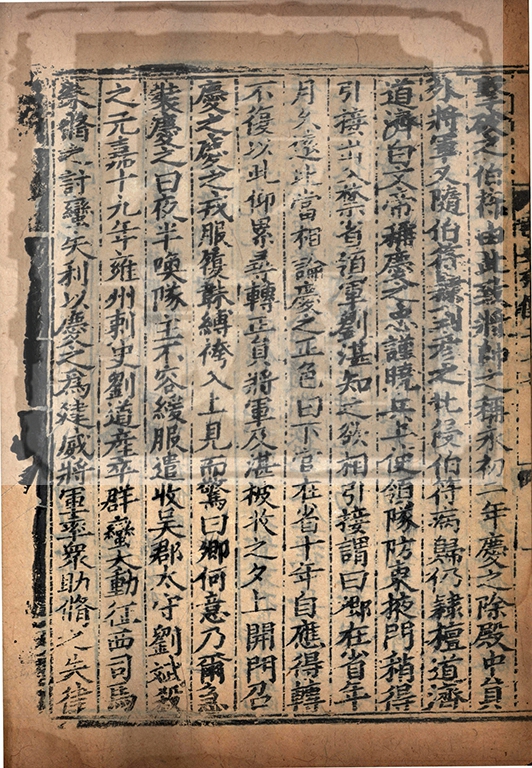 擊破之伯符由此致將帥之稱永初二年慶之除殿中員
外將軍又隨伯符隸到彥之北侵伯符病歸仍隸檀道濟
道濟白文帝稱慶之忠謹曉兵上使領隊防東掖門稍得
引接出入禁省領軍劉湛知之欲相引接謂曰卿在省年
月久遠此當相論慶之正色曰下官在省十年自應得轉
不復以此仰累尋轉正員將軍及湛被收之夕上開門召
慶之慶之戎服履韈縛袴入上見而驚曰卿何意乃爾急
裝慶之曰夜半喚隊主不容緩服遣收吳郡太守劉斌殺
之元嘉十九年雍州刺史劉道產卒群蠻大動征西司馬
將之討蠻失利以慶之為建威將軍率眾助脩之失律